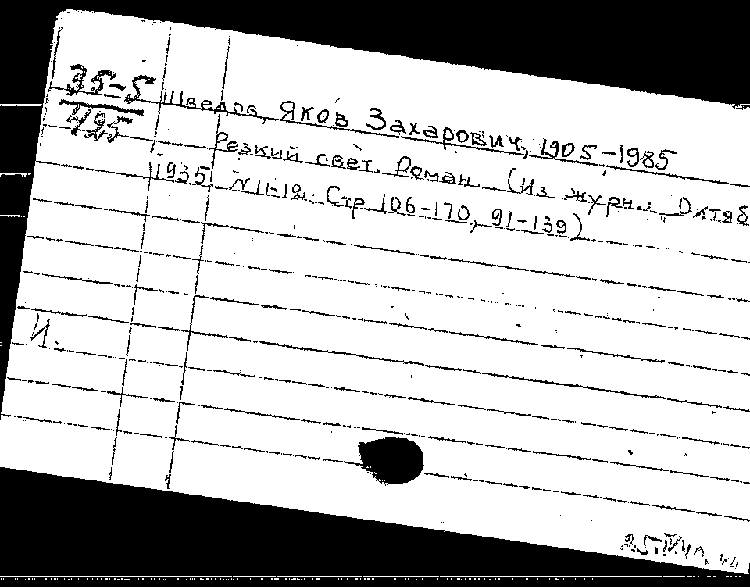 35-5
425
Шведов, Яков Захарович, 1905-1985
Резкий свет. Роман. (Из журн. „Октяб
1935 N 11-12. Стр 106-170, 91-139)
И.